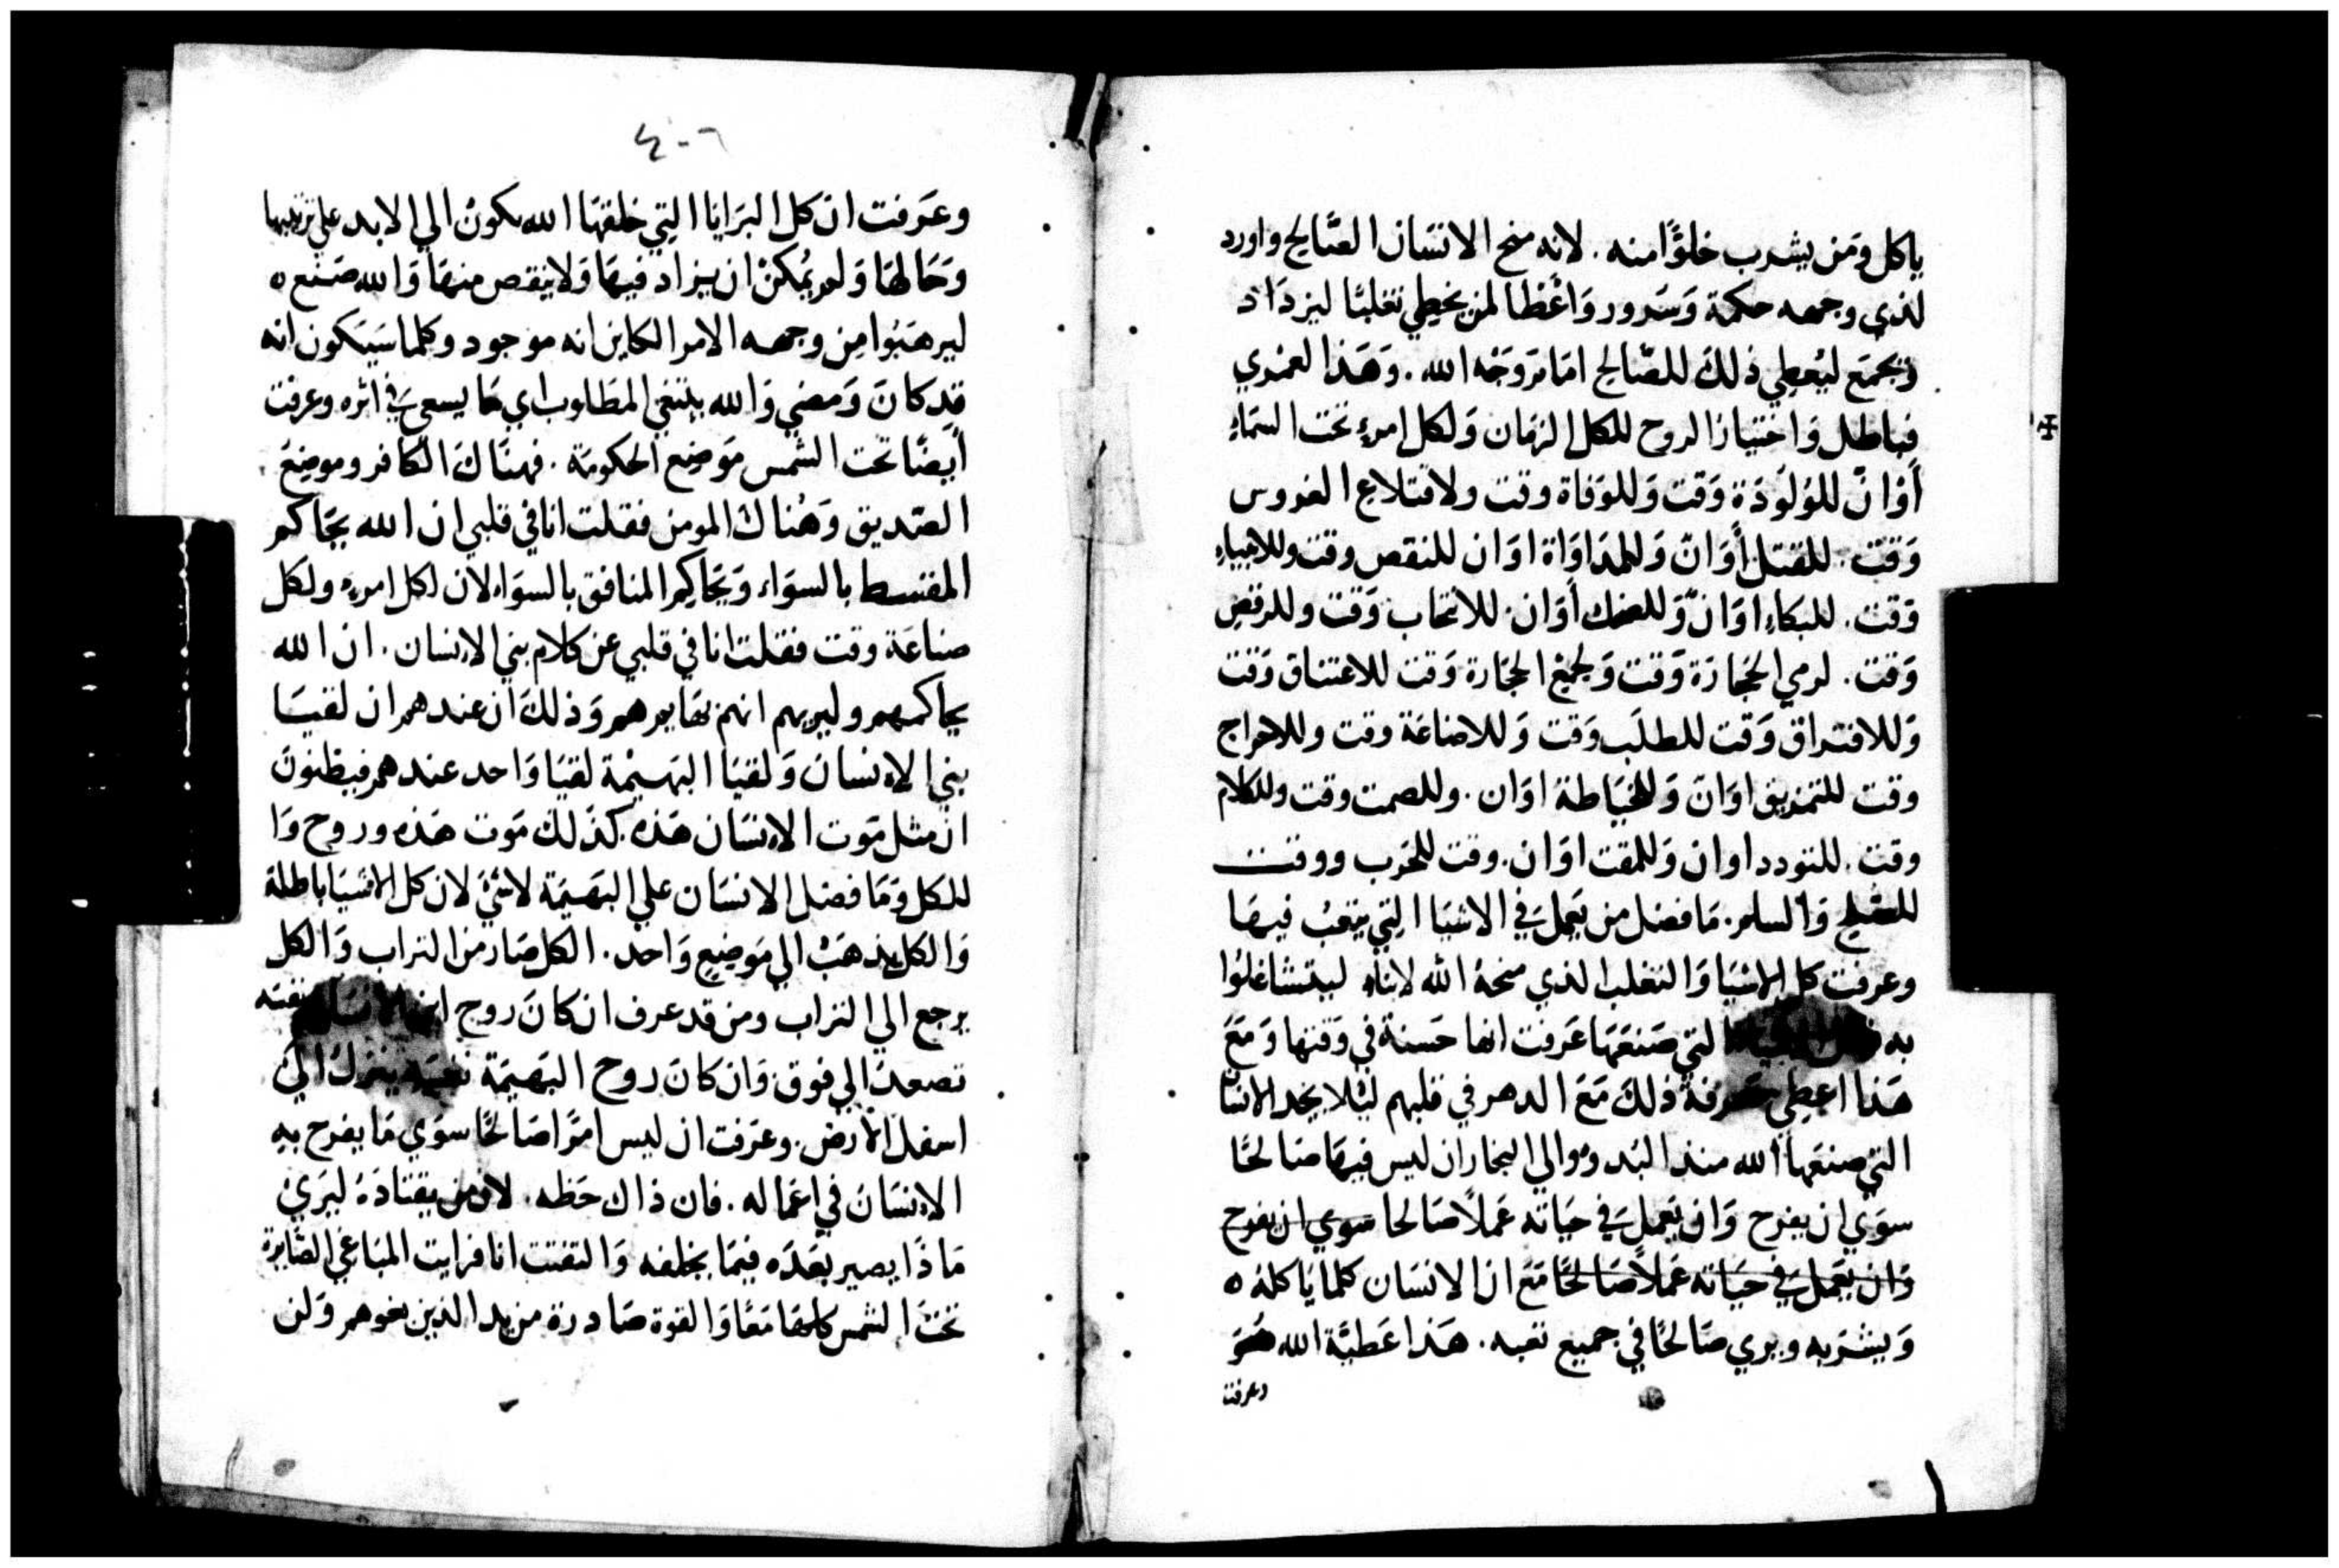 ياكل ومن يشرب خلوًا منه. لانه منح الانسان الصالح واورد
لذي وجهه حكمة وسرور واعطا لمن يخطي تغلبًا ليزداد
ويجمع ليعطي ذلك للصالح امام وجه الله. وهذا لعمري
فباطل واختياز الروح للكل الزمان ولكل امرء تحت السماء
أوان للولودة وقت وللوفاة وقت ولاقتلاع الغروس
وقت. للقتل أوان وللمداواة اوان للنقص وقت وللابنياء
وقت. للبكاء اوان وللضحك أوان. للانتحاب وقت وللرقص
وقت. لرمي الحجارة وقت ولجمع الحجارة وقت للاعتناق وقت
وللافتراق وقت للطلب وقت وللاضاعة وقت وللاحراج
وقت للتمزيق اوان وللخياطة اوان. وللصمت وقت وللكلام
وقت. للتودد اوان وللمقت اوان. وقت للحرب ووقت
للصلح والسلم. ما فضل من يعمل في الاشيا التي يتعب فيها
وعرفت كل الاشيا والتغلب الذي منحه الله لابناه ليتشاغلوا
به التي صنعها عرفت انها حسنة في وقتها ومع
هذا اعطي معرفة ذلك مع الدهر في قلبهم ليلا يجد الانسا
التي صنعها الله منذ البدو والي النجاز ان ليس فيها صالحًا
سوي ان يفرح وان يعمل في حياته عملاً صالحا سوي ان يفرح
وان يعمل في حياته عملاً صالحًا مع ان الانسان كلما ياكله ه
ويشربه ويري صالحًا في جميع تعبه. هذا عطية الله هو
وعرفت
٤٠٦
وعرفت ان كل البرايا التي خلقها الله يكون الي الابد علي ترتيبها
وحالها ولم يمكن ان يزاد فيها ولا ينقص منها والله صنع ه
ليرهبوا من وجهه الامر الكاين انه موجود وكلما سيكون انه
قد كان ومضي والله يبتغي المطلوب اي ما يسعي في اثره وعرفت
أيضًا تحت الشمس موضع الحكومة. فهناك الكافر وموضع
الصديق وهناك المومن فقلت انا في قلبي ان الله يحاكم
المقسط بالسواء ويحاكم المنافق بالسواء لان لكل امرء ولكل
صناعة وقت فقلت انا في قلبي عن كلام بني الانسان. ان الله
يحاكمهم وليريهم انهم بهايم هم وذلك ان عندهم ان لقيا
بني الانسان ولقيا البهيمة لقيا واحد عندهم فيظنون
ان مثل موت الانسان هذه كذلك موت هذه وروح وا
للكل وما فضل الانسان علي البهيمة لاشي لان كل الاشيا باطلة
والكل يذهب الي موضع واحد. الكل صار من التراب والكل
يرجع الي التراب ومن قد عرف ان كان روح ابن الانسان نفسه
تصعد الي فوق وان كان روح البهيمة نفسه ينزل الي
اسفل الارض. وعرفت ان ليس امرًا صالحًا سوي ما يفرح به
الانسان في اعماله. فان ذاك حظه. لان من يقتاده ليري
ماذا يصير بعده فيما يخلفه والتفتت انا فرايت المباغي الصايرة
تحت الشمس كلها معًا والقوة صادرة من يد الذين بغوهم ولن